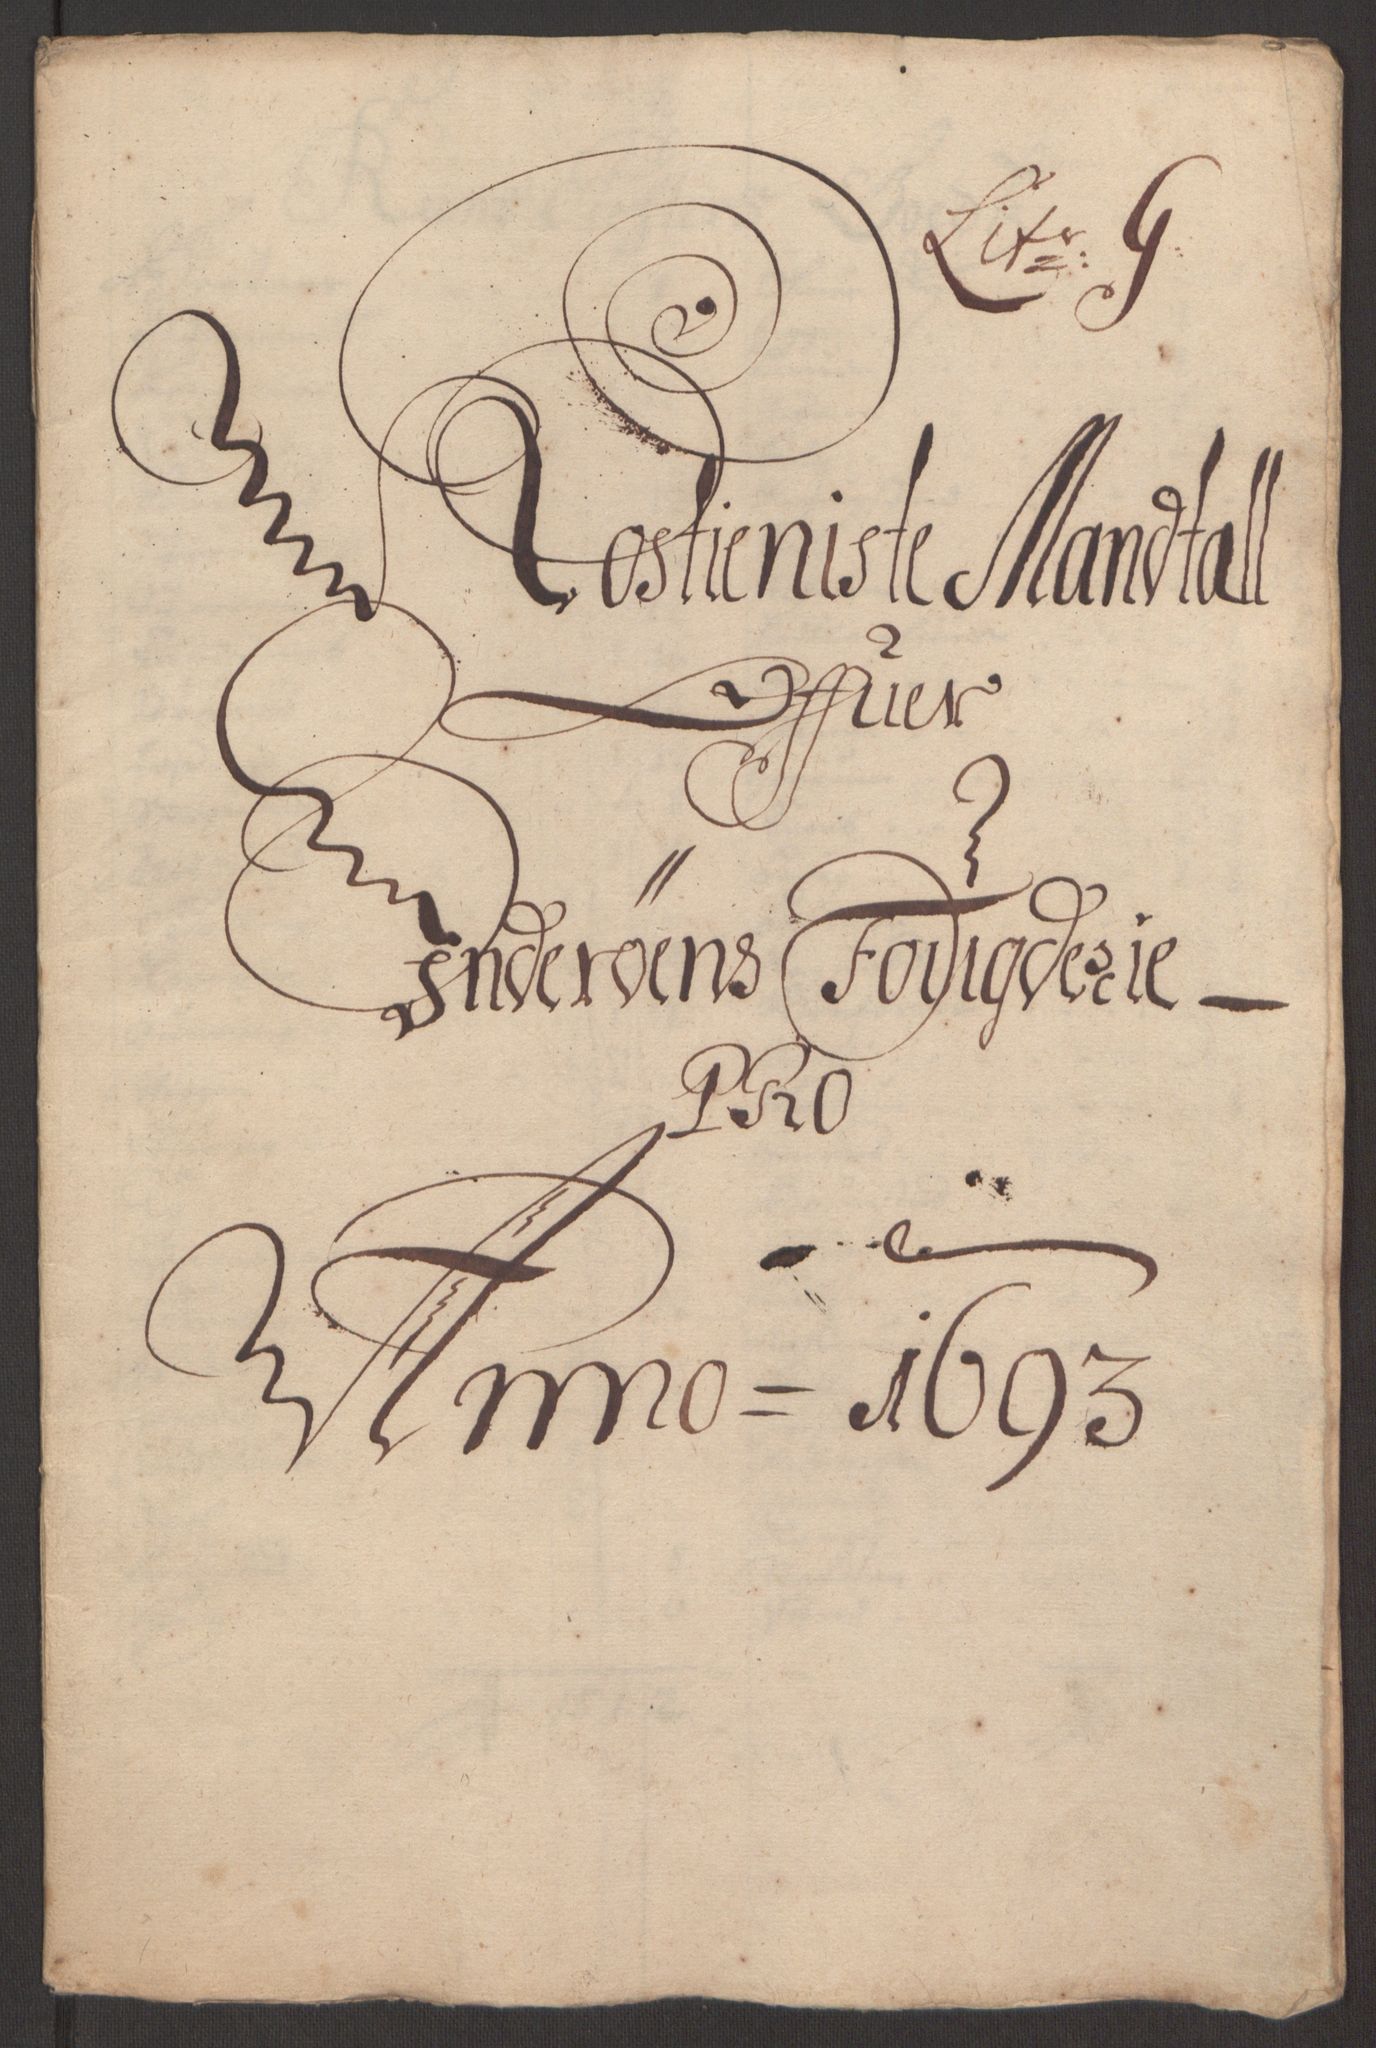 Litr: G
Rostieniste Mandtall
Offuer
Inderöens Fougderie
PRO
Anno = 1693